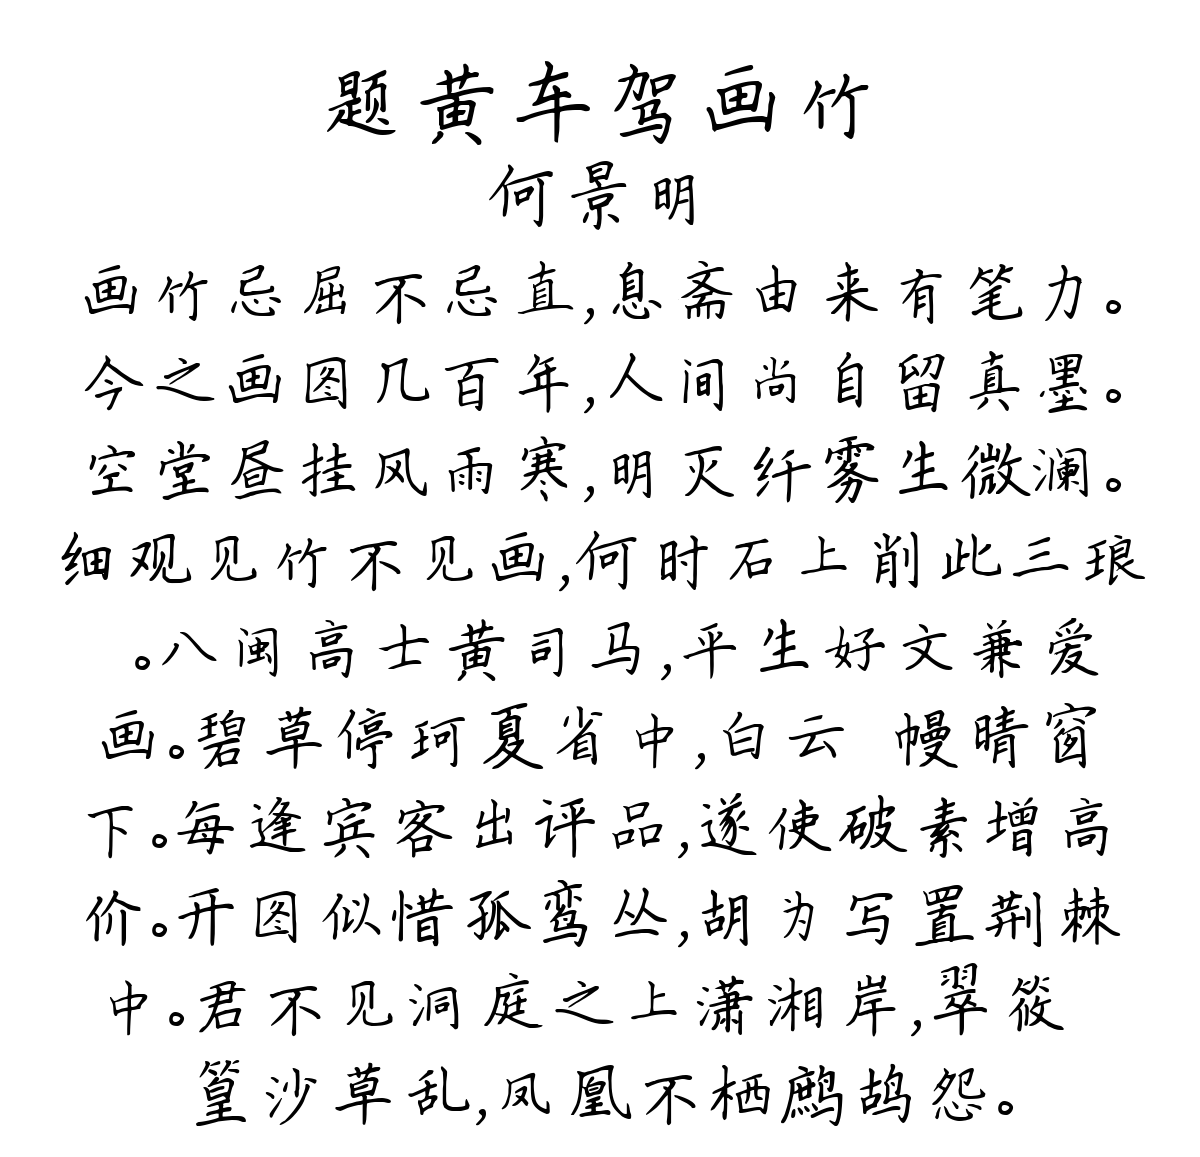 题黄车驾画竹
何景明
画竹忌屈不忌直,息斋由来有笔力。
今之画图几百年,人间尚自留真墨。
空堂昼挂风雨寒,明灭纤雾生微澜。
细观见竹不见画,何时石上削此三琅
。八闽高士黄司马,平生好文兼爱
画。碧草停珂夏省中,白云 幔晴窗
下。每逢宾客出评品,遂使破素增高
价。开图似惜孤鸾丛,胡为写置荆棘
中。君不见洞庭之上潇湘岸,翠筱
篁沙草乱,凤凰不栖鹧鸪怨。